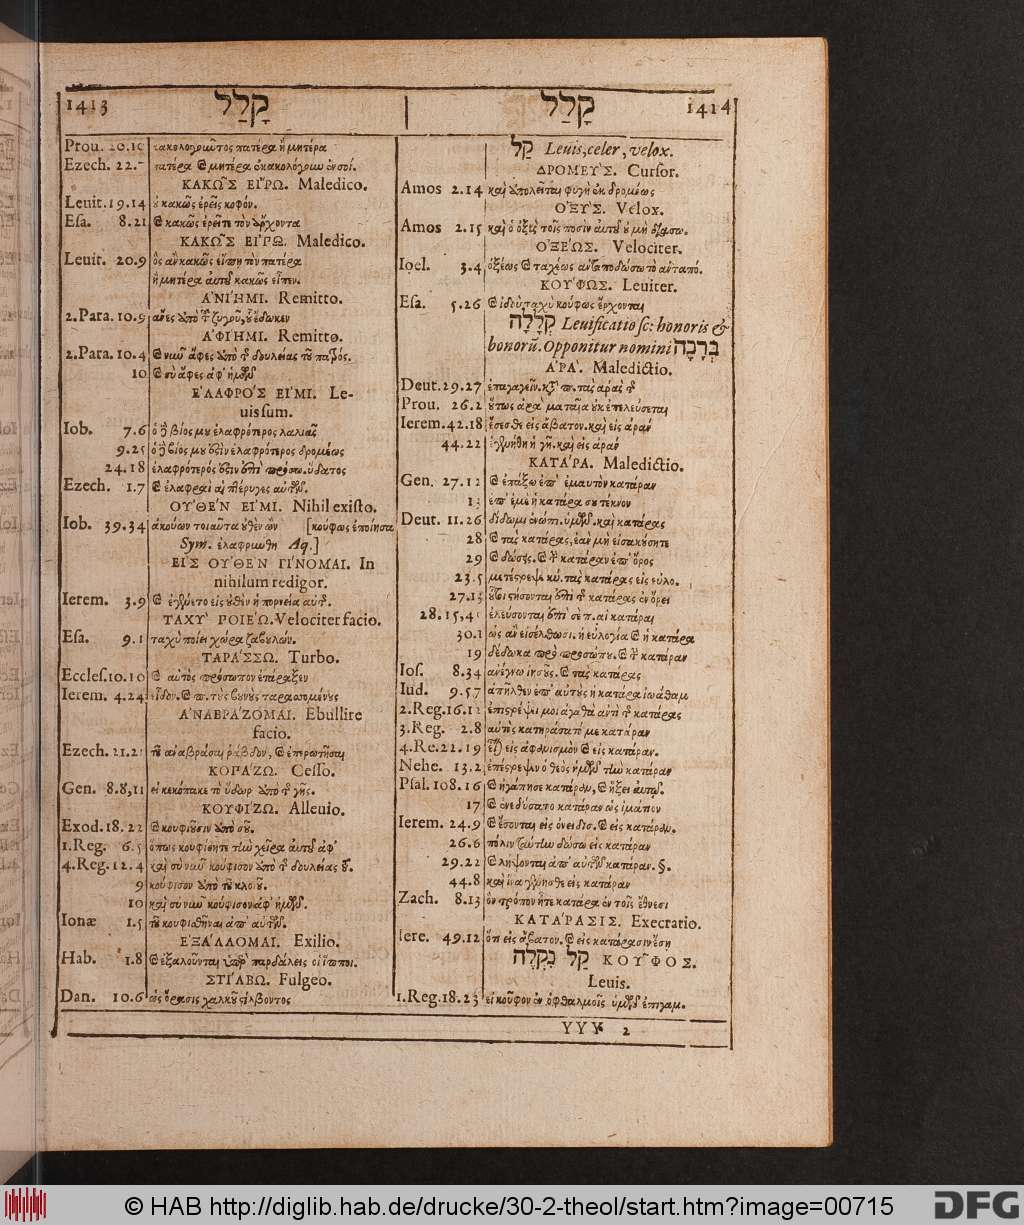 1413 קָלַל
Prou. 20.   κακολογοιῶτος πατέρα ἢ μητέρα
Ezech. 22.   πατέρα καὶ μητέρα
ΚΑΚΩ͂Σ ΕΙ῎ΡΩ. Maledico.
Leuit. 19.14 κακῶς ἐρεῖς κοφόν.
Esa. 8.21 καὶ κακῶς ἐρεῖτε τὸν ἄρχοντα
ΚΑΚΩ͂Σ ΕΙ῎ΡΩ. Maledico.
Leuit. 20.9 ὃς ἂν κακῶς εἴπῃ τὸν πατέρα
ἢ μητέρα αὐτοῦ κακῶς εἶπεν.
ἈΝΙΉΜΙ. Remitto.
2.Para. 10.9 ἄνες ἀπὸ τοῦ ζυγοῦ, οὗ ἔδωκεν
ἈΦΙΉΜΙ. Remitto.
2.Para. 10.4 καὶ νῦν ἄφες ἀπὸ τῆς δουλείας τοῦ πατρός.
10 καὶ σὺ ἄφες ἀφ' ἡμῶν
ἘΛΑΦΡΌΣ ΕΙ᾿ΜΙ. Le-
uis sum.
Iob. 7.6 ὁ δὲ βίος μου ἐλαφρότερος λαλιᾶς
9.25 ὁ δὲ βίος μου ἐστὶν ἐλαφρότερος δρομέως
24.18 ἐλαφρότερός ἐστιν ἐπὶ πρόσω. ὕδατος
Ezech. 1.7 καὶ ἐλαφραὶ αἱ πτέρυγες αὐτῶν.
ΟΥ᾿ΘῈΝ ΕΙ᾿ΜΙ. Nihil existo.
Iob. 39.34 ἀκούων τοιαῦτα οὐθὲν ὢν [κούφως ἐποίησα
Sym. ἐλαφριώθη Aq.]
ΕΙ᾿Σ ΟΥ᾿ΘῈΝ ΓΊΝΟΜΑΙ. In
nihilum redigor.
Ierem. 3.9 καὶ ἐγένετο εἰς οὐθὲν ἡ πορνεία αὐτ.
ΤΑΧῪ ΠΟΙΈΩ. Velociter facio.
Esa. 9.1 ταχὺ ποίει χώρα ζαβουλών.
ΤΑΡΆΣΣΩ. Turbo.
Eccles. 10.10 καὶ αὐτὸς πρόσωπον ἐτάραξεν
Ierem. 4.24 εἶδον. καὶ π. τοὺς βουνοὺς ταρασσομένους
ἈΝΑΒΡΆΖΟΜΑΙ. Ebullire
facio.
Ezech. 21.21 τοῦ ἀναβράσαι ῥάβδον, καὶ ἐπερωτῆσαι
ΚΟΠΆΖΩ. Cesso.
Gen. 8.8,11 εἰ κεκόπακε τὸ ὕδωρ ἀπὸ τῆς γῆς.
ΚΟΥΦΊΖΩ. Alleuio.
Exod. 18.22 καὶ κουφιοῦσιν ἀπὸ σοῦ.
1.Reg. 6.5 ὅπως κουφίσητε τὴν χεῖρα αὐτοῦ ἀφ'
4.Reg. 12.4 καὶ σὺ νῦν κούφισον ἀπὸ τῆς δουλείας
9 κούφισον ἀπὸ τοῦ κλοιοῦ.
10 καὶ σὺ νῦν κούφισον ἀφ' ἡμῶν.
Ionæ 1.5 τοῦ κουφισθῆναι ἀπ' αὐτῶν.
ἘΞΆΛΛΟΜΑΙ. Exilio.
Hab. 1.8 καὶ ἐξαλοῦνται ὑπὲρ παρδάλεις οἱ ἵπποι.
ΣΤΊΛΒΩ. Fulgeo.
Dan. 10.6 ὡς ὅρασις χαλκοῦ στίλβοντος
קָלַל 1414
קַל Leuis, celer, velox.
ΔΡΟΜΕΥ῍Σ. Cursor.
Amos 2.14 καὶ ἀπολεῖται φυγὴ ἐκ δρομέως
ΟΞΥ῍Σ. Velox.
Amos 2.15 καὶ ὁ ὀξὺς τοῖς ποσὶν αὐτοῦ οὐ μὴ διασω.
ὈΞΈΩΣ. Velociter.
Ioel. 3.4 ὀξέως καὶ ταχέως ἀνταποδώσω τὸ ἀνταπό.
ΚΟΎΦΩΣ. Leuiter.
Esa. 5.26 καὶ ἰδοὺ ταχὺ κούφως ἔρχονται
קְלָלָה Leuificatio sc: honoris &
bonorũ. Opponitur nomini בְּרָכָה
ἈΡΆ. Maledictio.
Deut. 29.27 ἐπαγαγεῖν. κατ. π. τὰς ἀρὰς τ
Prou. 26.2 οὕτως ἀρὰ ματαία οὐκ ἐπελεύσεται
Ierem. 42.18 ἔσεσθε εἰς ἄβατον. καὶ εἰς ἀράν
44.22 ἐγενήθη ἡ γῆ. καὶ εἰς ἀράν
ΚΑΤΆΡΑ. Maledictio.
Gen. 27.12 καὶ ἐπάξω ἐπ' ἐμαυτὸν κατάραν
13 ἐπ' ἐμὲ ἡ κατάρα σου τέκνον
Deut. 11.26 δίδωμι ἐνώπι. ὑμῶν. καὶ κατάρας
28 καὶ τὰς κατάρας, ἐὰν μὴ εἰσακούσητε
29 καὶ δώσεις. καὶ τὴν κατάραν ἐπ' ὄρος
23.5 μετέστρεψε κύ. τὰς κατάρας εἰς εὐλο.
27.13 οὗτοι στήσονται ἐπὶ τῆς κατάρας ἐν ὄρει
28.15,45 ἐλεύσονται ἐπὶ σὲ π. αἱ κατάραι
30.1 ὡς ἂν εἰσέλθωσι. ἡ εὐλογία καὶ ἡ κατάρα
19 δέδωκα πρὸ προσώπου. καὶ τὴν κατάραν
Ios. 8.34 ἀνέγνω ἰησοῦς. καὶ τὰς κατάρας
Iud. 9.57 ἀπῆλθεν ἐπ' αὐτοὺς ἡ κατάρα ἰωάθαμ
2.Reg. 16.12 ἐπιστρέψει μοι ἀγαθὰ ἀντὶ τῆς κατάρας
3.Reg. 2.8 αὐτὸς κατηράσατό με κατάραν
4.Re. 22.19 εἰς ἀφανισμὸν καὶ εἰς κατάραν.
Nehe. 13.2 ἐπέστρεψεν ὁ θεὸς ἡμῶν τὴν κατάραν
Psal. 108.16 καὶ ἠγάπησε κατάραν, καὶ ἥξει αὐτῷ.
17 καὶ ἐνεδύσατο κατάραν ὡς ἱμάτιον
Ierem. 24.9 καὶ ἔσονται εἰς ὀνειδισ. καὶ εἰς κατάραν.
26.6 πόλιν ταύτην δώσω εἰς κατάραν
29.22 καὶ λήψονται ἀπ' αὐτῶν κατάραν.
44.8 καὶ ἵνα γένησθε εἰς κατάραν
Zach. 8.13 ὃν τρόπον ἦτε κατάρα ἐν τοῖς ἔθνεσι
ΚΑΤΆΡΑΣΙΣ. Execratio.
Iere. 49.12 ὅτι εἰς ἄβατον. καὶ εἰς κατάρασιν ἔσῃ
קַל נְקִלֶּה ΚΟΥ͂ΦΟΣ.
Leuis.
1.Reg. 18.23 εἰ κοῦφον ἐν ὀφθαλμοῖς ὑμῶν ἐπιγαμ.
YYY 2
© HAB http://diglib.hab.de/drucke/30-2-theol/start.htm?image=00715
DFG